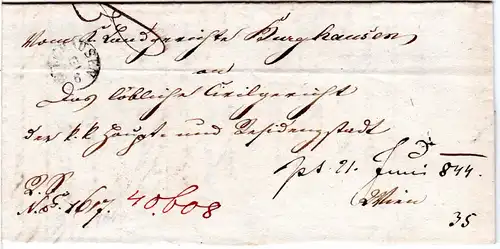 Vom K. Landgerichte Burghausen
BURGHAUSEN
an
Das löbliche Civilgericht
der k.k. Haupt- und Residenzstadt
ps. 21. Juni 844.
Wien
N.o 1617.
40.608
35